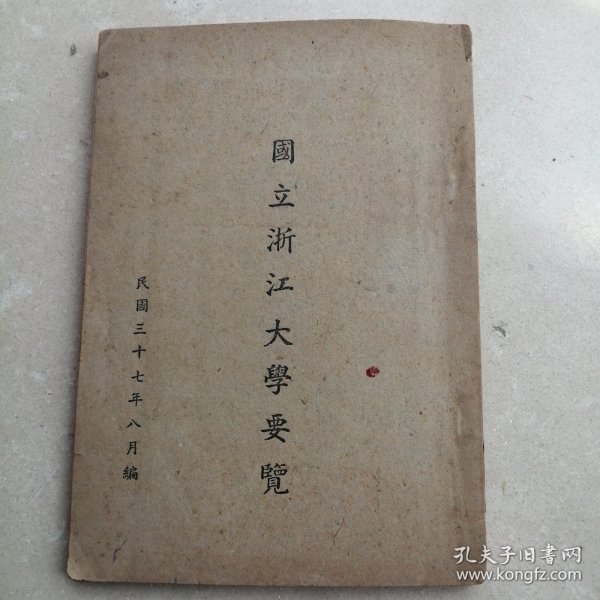 國立浙江大學要覽
民國三十七年八月編
孔夫子旧书网
www.kongfz.com